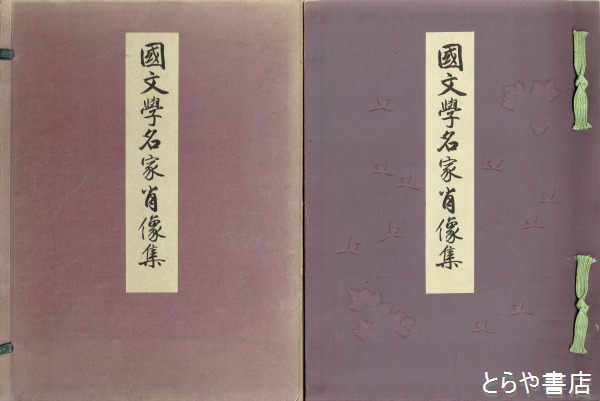 國文學名家肖像集
國文學名家肖像集
とらや書店